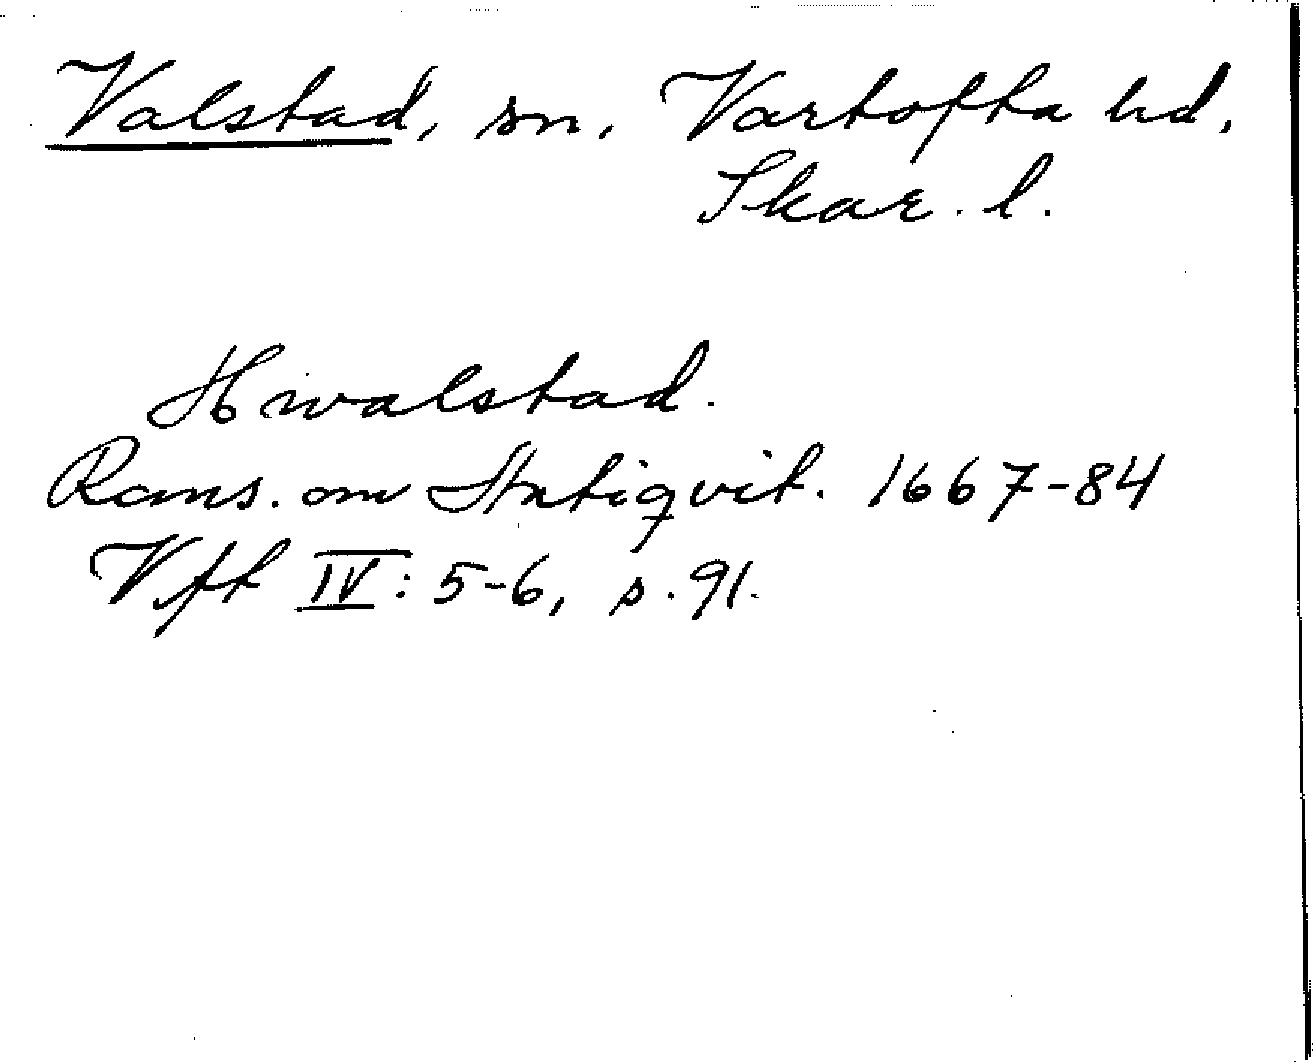 Valstad, sn. Vartofta hd.
Skar. l.
Hwalstad.
Rans. om Antiqvit. 1667-84
Vft IV: 5-6, s. 91.